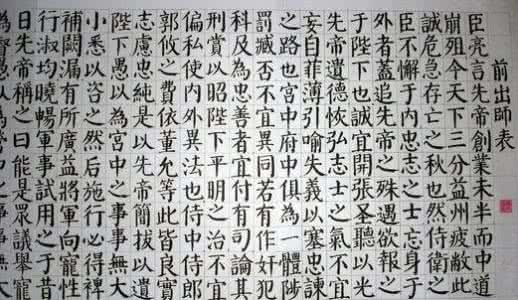 前出師表
臣亮言先帝創業未半而中道
崩殂今天下三分益州疲敝此
誠危急存亡之秋也然侍衛之
臣不懈于內忠志之士忘身于
外者蓋追先帝之殊遇欲報之
于陛下也誠宜開張圣聽以光
先帝遺德恢弘志士之氣不宜
妄自菲薄引喻失義以塞忠諫
之路也宮中府中俱為一體陟
罰臧否不宜異同若有作奸犯
科及為忠善者宜付有司論其
刑賞以昭陛下平明之治不宜
偏私使內外異法也侍中侍郎
郭攸之費依董允等此皆良實
志慮忠純是以先帝簡拔以遺
陛下愚以為宮中之事事無大
小悉以咨之然后施行必得裨
補闕漏有所廣益將軍向寵性
行淑均曉暢軍事試用之于昔
日先帝稱之曰能是眾議舉寵